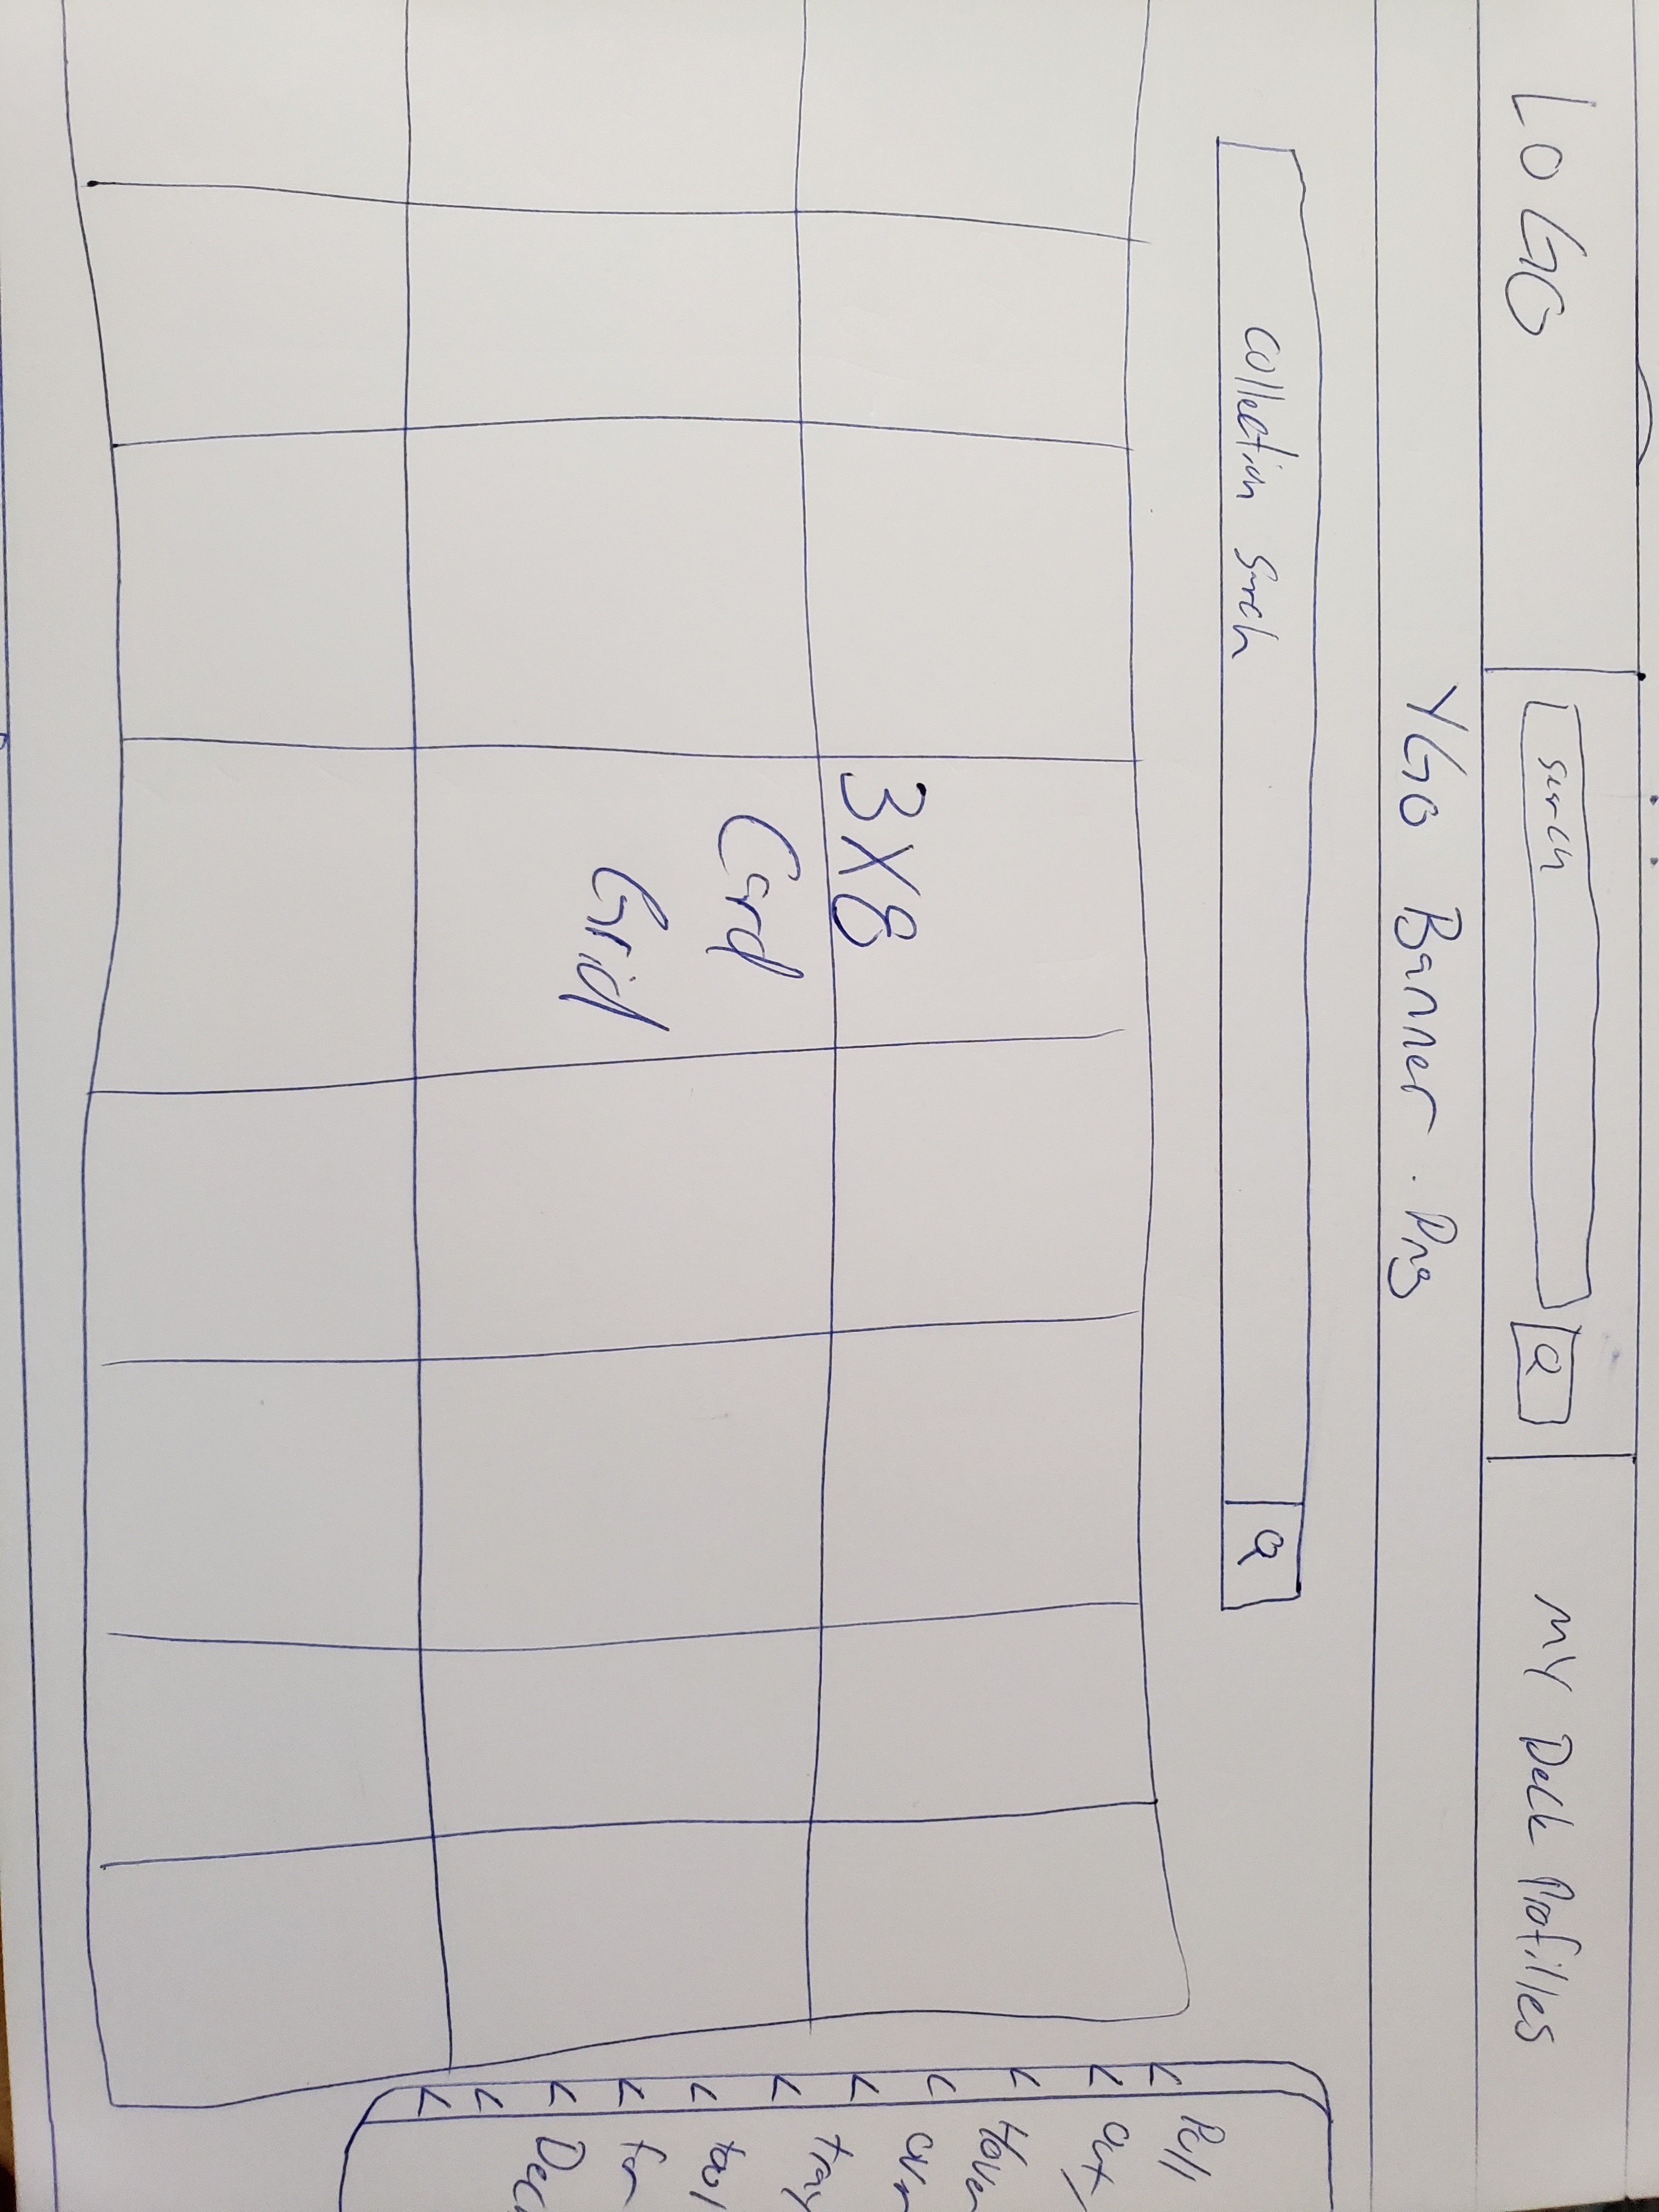 LOGO
search
MY Deck Profilles
YGO Banner.Png
Collection Surch
3X8
Card
Grid
Pull
Out/
Hover
over
tray
tool
for
Deck